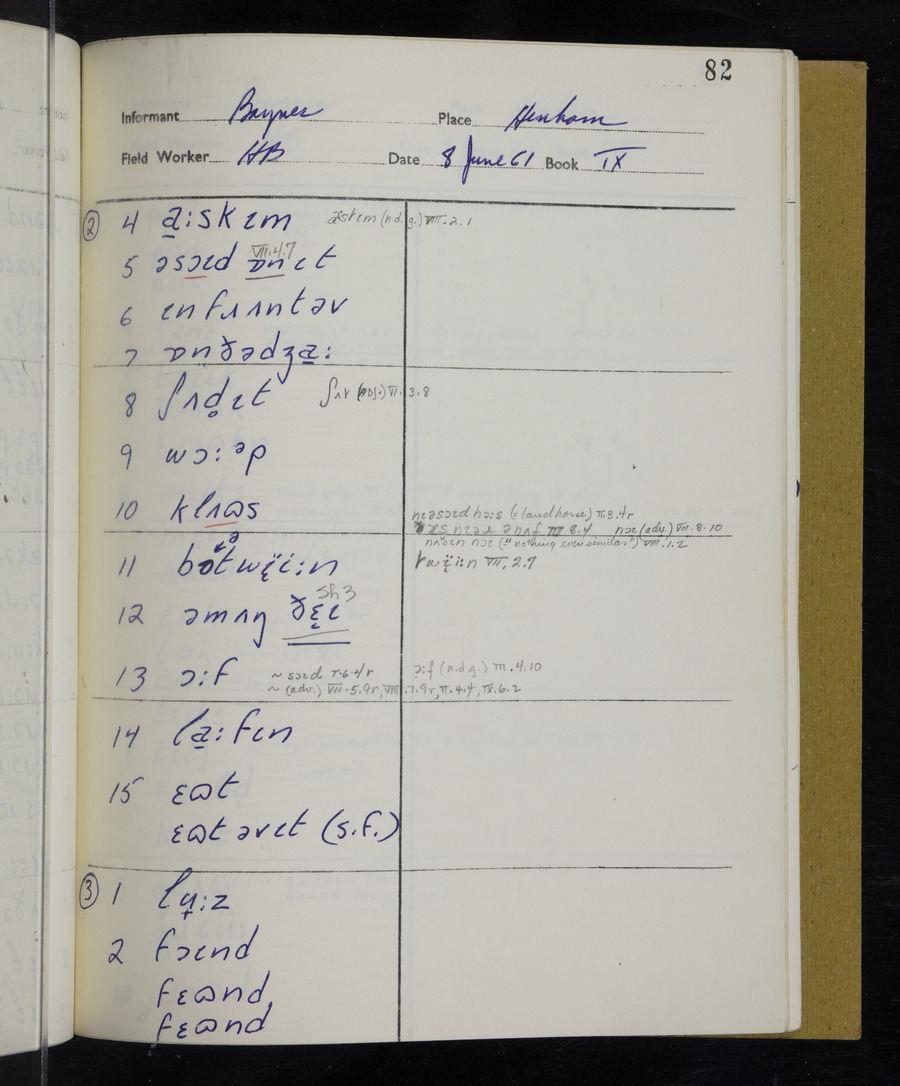 82
Informant Baynes Place Henham
Field Worker HB Date 8 June 61 Book IX
② 4 a̱:skɪm æskɪm (n.d.g.) VIII.2.1
5 əsɔɪd ɒnɪt VII.4.7
6 ɪn fɹʌntəv
7 ɒnðədʒa̱:
8 ʃʌd̥ɪt ʃʌt (ADJ.) VI.3.8
9 wɔ:ᵊp
10 klʌɷs
nɪəsɔɪd hɔ:s (=landhorse) II.3.4r
nɪəɹ ənʌf III.8.4 nɔɪ (adv.) VII.8.10
("nothing even similar") VIII.1.2
11 bətwïi:n rwïi:n VII.2.7
12 əmʌŋ ðɛ̝ɪ Sh3
13 ɔ:f ~ sɔɪd I.6.4r ɔ:f (n.d.g.) III.4.10
~ (adv.) VII.5.9r, VIII.7.9r, II.4.4, IX.6.2
14 la̱:fɪn
15 ɛɷt
ɛɷt əvɪt (s.f.)
③ 1 lʉ̟:z
2 fɔɪnd
fɛɷnd
fɛɷnd